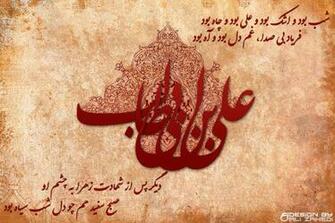 شب بود و اشک بود و علی بود و چاه بود
فریاد بی صدا، غم دل بود و آه بود
علی بن ابی طالب
دیگر پس از شهادت زهرا به چشم او
صبح سفید هم چو دل شب سیاه بود
DESIGN BY
ALI ZAHED